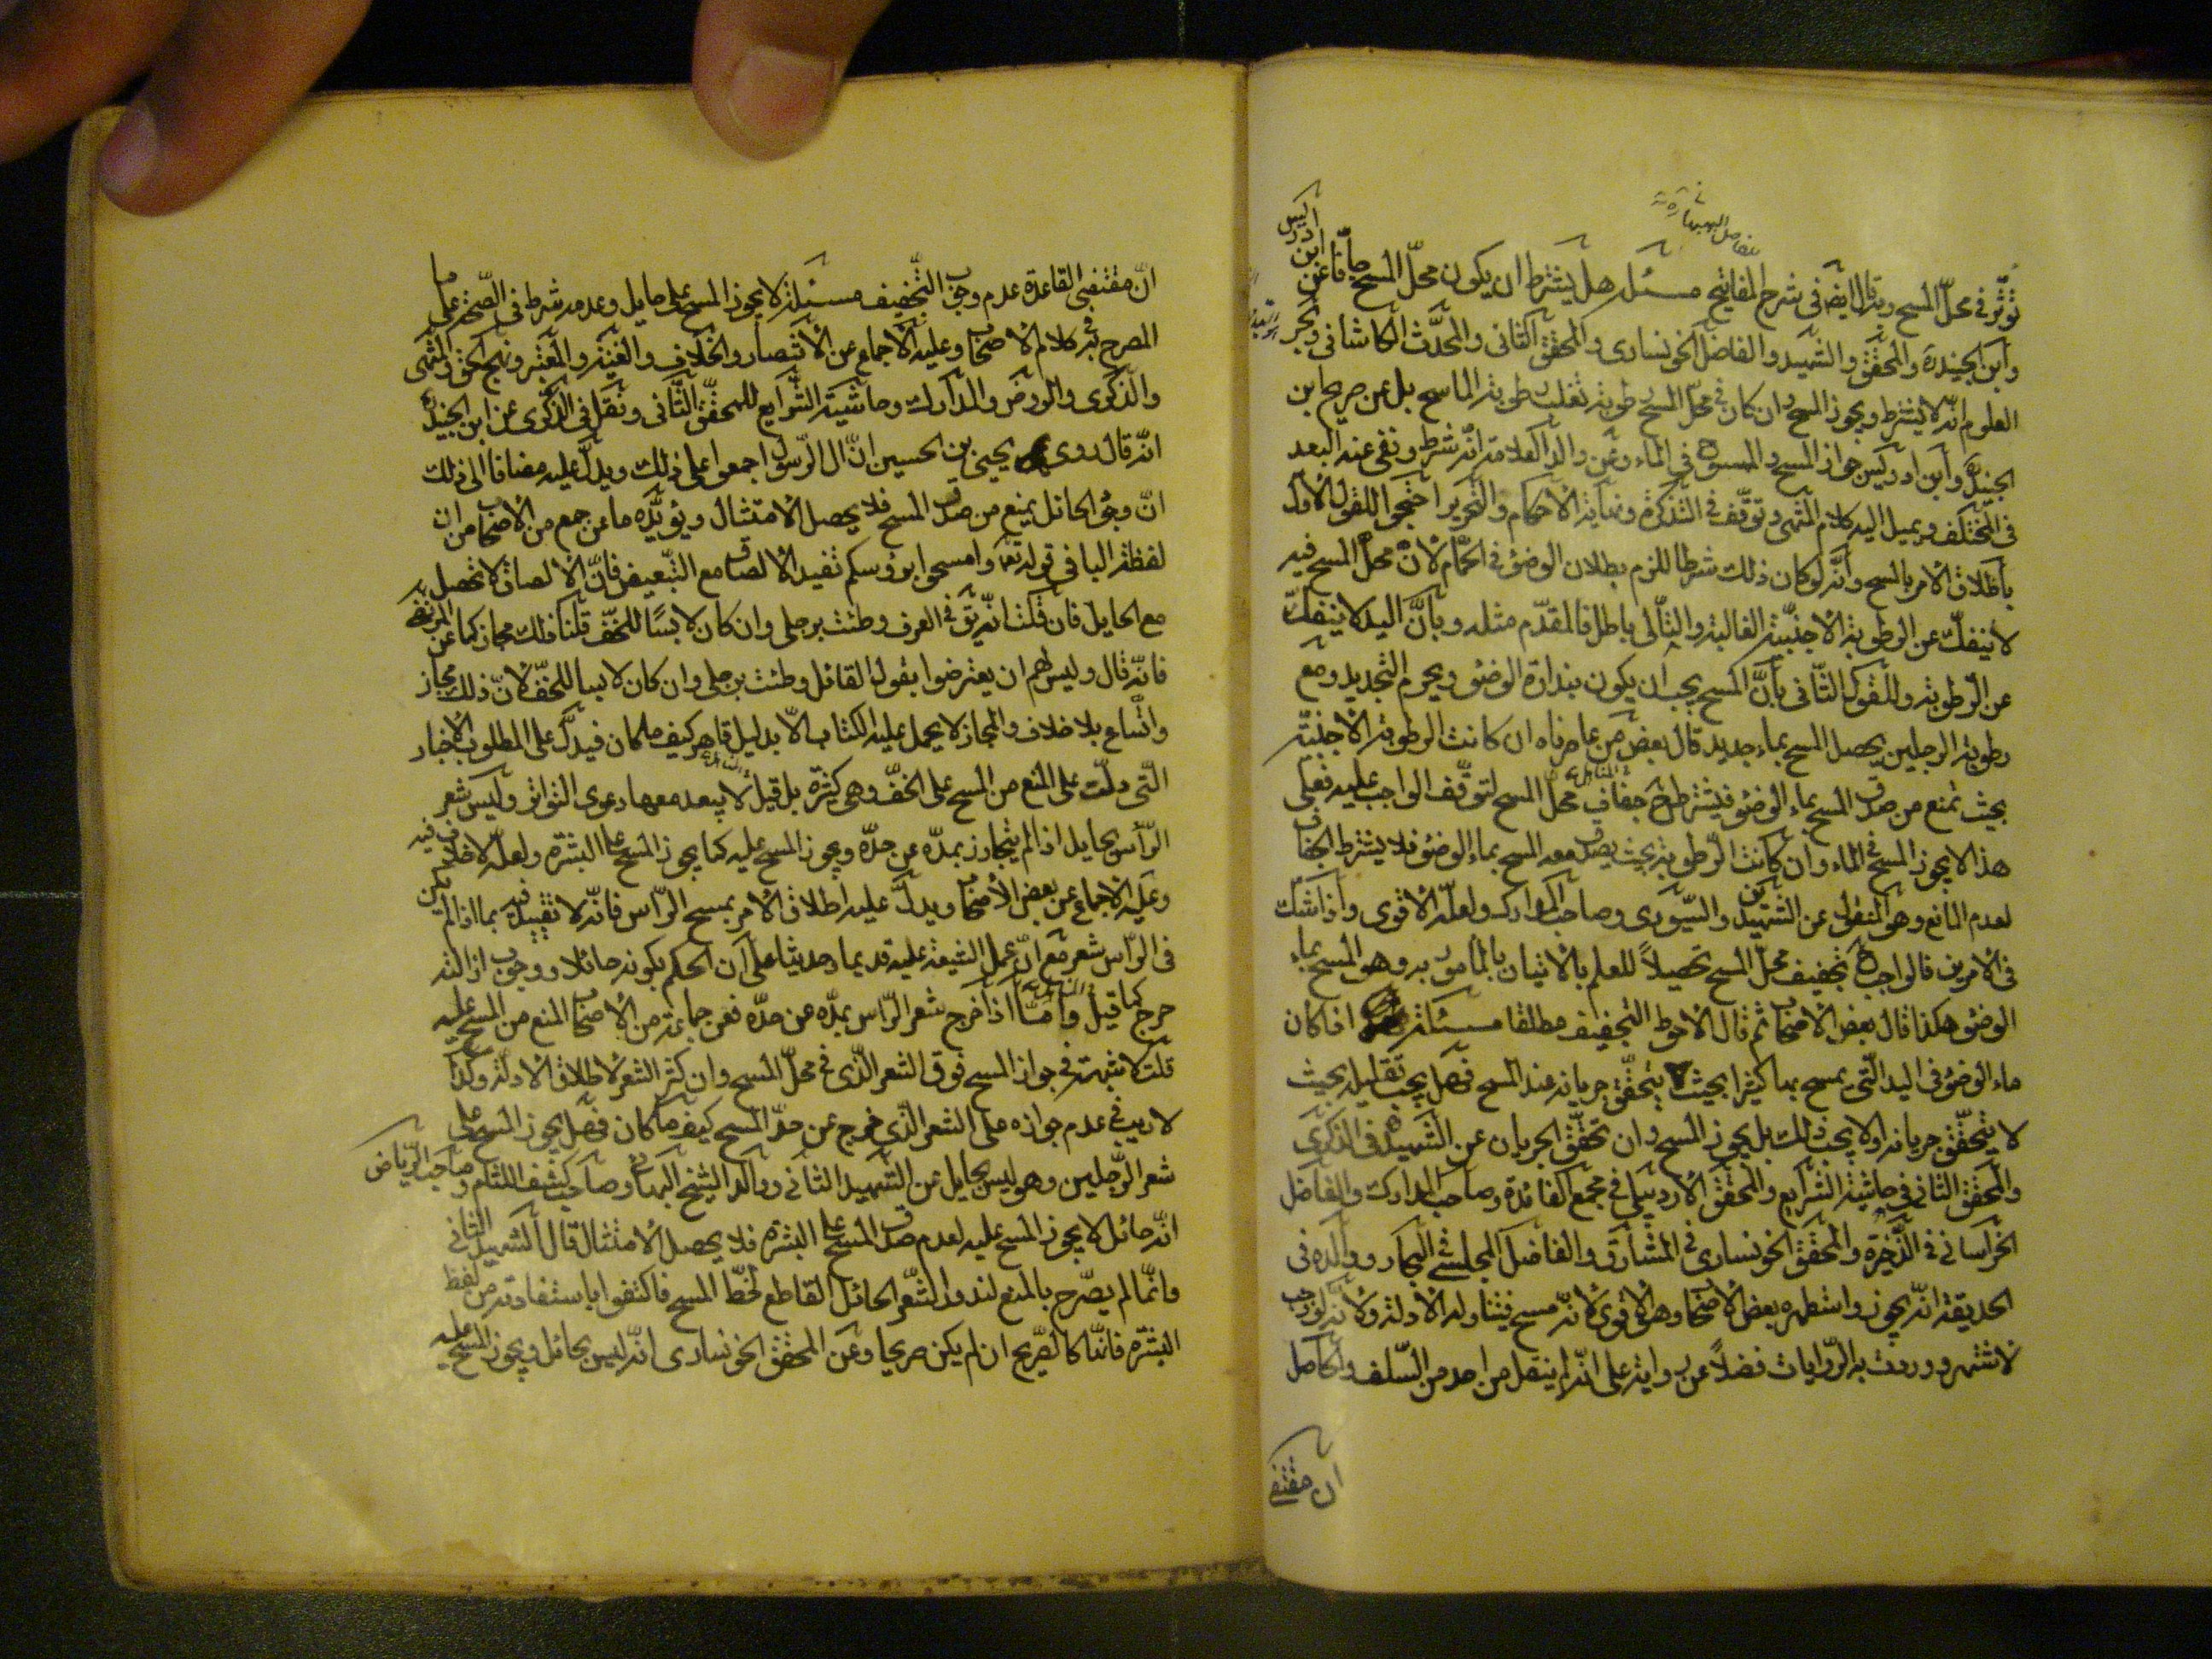 الفاضل البهبهانی ره
تؤثر فی محلّ المسح وبه قال ایضا فی شرح المفاتیح مسئلة هل یشترط ان یکون محلّ المسح جافّا فعن ابن ادریس
وابن الجنید ره والمحقق والشهید والفاضل الخونساری والمحقق الثانی والمحدّث الکاشانی وبحر
العلوم انّه لا یشترط ویجوز المسح وان کان فی محلّ المسح رطوبة تغلب رطوبة الماسح بل عن صریح ابن
الجنید وابن ادریس جواز المسح والممسوح فی الماء وعن والد العلامة انّه شرط ونفی عنه البعد
فی المختلف ویمیل الیه کلام المنتهی وتوقّف فی التذکرة ونهایة الاحکام والتحریر احتجوا للقول الاول
باطلاق الامر بالمسح وانّه لو کان ذلک شرطا للزم بطلان الوضوء فی الحمّام لانّ محلّ المسح فیه
لا ینفکّ عن الرطوبة الاجنبیّة الغالبة والتّالی باطل فالمقدّم مثله وبانّ الید لا ینفکّ
عن الرّطوبة وللقول الثّانی بانّ المسح یجب ان یکون بنداوة الوضوء ویحرم التجدید ومع
رطوبة الرجلین یحصل المسح بماء جدید قال بعض من عاصرناه ان کانت الرطوبة الاجنبیّة
بحیث تمنع من صدق المسح بماء الوضوء فیشترط ح جفاف محلّ المسح لتوقّف الواجب علیه فعلی
هذا لا یجوز المسح فی الماء وان کانت الرّطوبة بحیث یصدق معه المسح بماء الوضوء فلا یشترط الجفاف
لعدم المانع وهو المنقول عن الشهیدین والسّیوری وصاحب المدارک ولعلّه الاقوی واذا شک
فی الامرین فالواجب ح تجفیف محلّ المسح تحصیلاً للعلم بالاتیان بالمأمور به وهو المسح بماء
الوضوء هکذا قال بعض الاصحاب ثم قال الاحوط التجفیف مطلقا مسئلة اذا کان
ماء الوضوء فی الید الّتی یمسح بها کثیرا بحیث یتحقّق جریانه عند المسح فهل یجب تقلیله بحیث
لا یتحقّق جریانه او لا یجب ذلک بل یجوز المسح وان تحقّق الجریان عن الشهید ره فی الذکری
والمحقق الثانی فی حاشیة الشرایع والمحقق الاردبیلی فی مجمع الفائدة وصاحب المدارک والفاضل
الخراسانی فی الذّخیرة والمحقق الخونساری فی المشارق والفاضل المجلسی فی البحار ووالده فی
الحدیقة انّه یجوز واستظهره بعض الاصحاب وهو الاقوی لانّه مسح فیتناوله الادلة ولانّه لو وجب
لاشتهر ووردت به الرّوایات فضلاً عن روایة علی انّه لم ینقل من احد من السّلف والحاصل
ان مقتضی
انّ مقتضی القاعدة عدم وجوب التّخفیف مسئلة لا یجوز المسح علی حایل وعدمه شرط فی الصّحّة علی ما
المصرح به فی کلام الاصحاب وعلیه الاجماع عن الانتصار والخلاف والغنیة والمعتبر ونهج الحق والمنتهی
والذّکری والروض والمدارک وحاشیة الشرایع للمحقّق الثّانی ونقل فی الذّکری عن ابن الجنید
انّه قال روی یحیی بن الحسین انّ ال الرّسول اجمعوا علی ذلک ویدلّ علیه مضافا الی ذلک
انّ وجود الحائل یمنع من صدق المسح فلا یحصل الامتثال ویؤیّده ما عن جمع من الاصحاب من ان
لفظة البا فی قوله تعا وامسحوا برؤسکم تفید الالصاق مع التّبعیض فانّ الالصاق لا تحصل
مع الحایل فان قلت انّه یق فی العرف وطئت برجلی وان کان لابسًا للخفّ قلنا ذلک مجاز کما عن المرتضی
فانّه قال ولیس لهم ان یعترضوا بقول القائل وطئت برجلی وان کان لابسا للخفّ لانّ ذلک مجاز
واتّساع بلا خلاف والمجاز لا یحمل علیه الکتاب الّا بدلیل قاهر کیف ما کان فیدلّ علی المطلوب الاخبار
الّتی دلّت علی المنع من المسح علی الخفّ وهی کثیرة بل قیل لا یبعد معها دعوی التواتر ولیس شعر
الرّأس بحایل اذا لم یتجاوز بمدّه عن حدّه ویجوز المسح علیه کما یجوز المسح علی البشرة ولعلّه لا خلاف فیه
وعلیه الاجماع عن بعض الاصحاب ویدلّ علیه اطلاق الامر بمسح الرّاس فانّه لا تقیید فیه بما اذا لم یکن
فی الرّاس شعر مع انّ عمل الشیعة علیه قدیما وحدیثا علی ان الحکم بکونه حائلا ووجوب ازالته
حرج کما قیل وامّا اذا خرج شعر الرّاس بمدّه عن حدّه فعن جماعة من الاصحاب المنع من المسح علیه
قلت لا شبهة فی جواز المسح فوق الشعر الّذی فی محلّ المسح وان کثر الشعر لاطلاق الادلّة وکذا
لا ریب فی عدم جوازه علی الشعر الّذی خرج عن حدّ المسح کیف ما کان فهل یجوز المسح علی
شعر الرّجلین وهو لیس بحایل عن الشهید الثانی ووالد الشیخ البهائی وصاحب کشف اللثام وصاحب الرّیاض
انّه حائل لا یجوز المسح علیه لعدم صدق المسح علی البشرة فلا یحصل الامتثال قال الشهید الثانی
وانّما لم یصّرح بالمنع لندور الشّعر الحائل القاطع لخطّ المسح فاکتفوا باستفادته من لفظ
البشرة فانّها کالصّریح ان لم یکن صریحا وعن المحقق الخونساری انّه لیس بحائل ویجوز المسح علیه